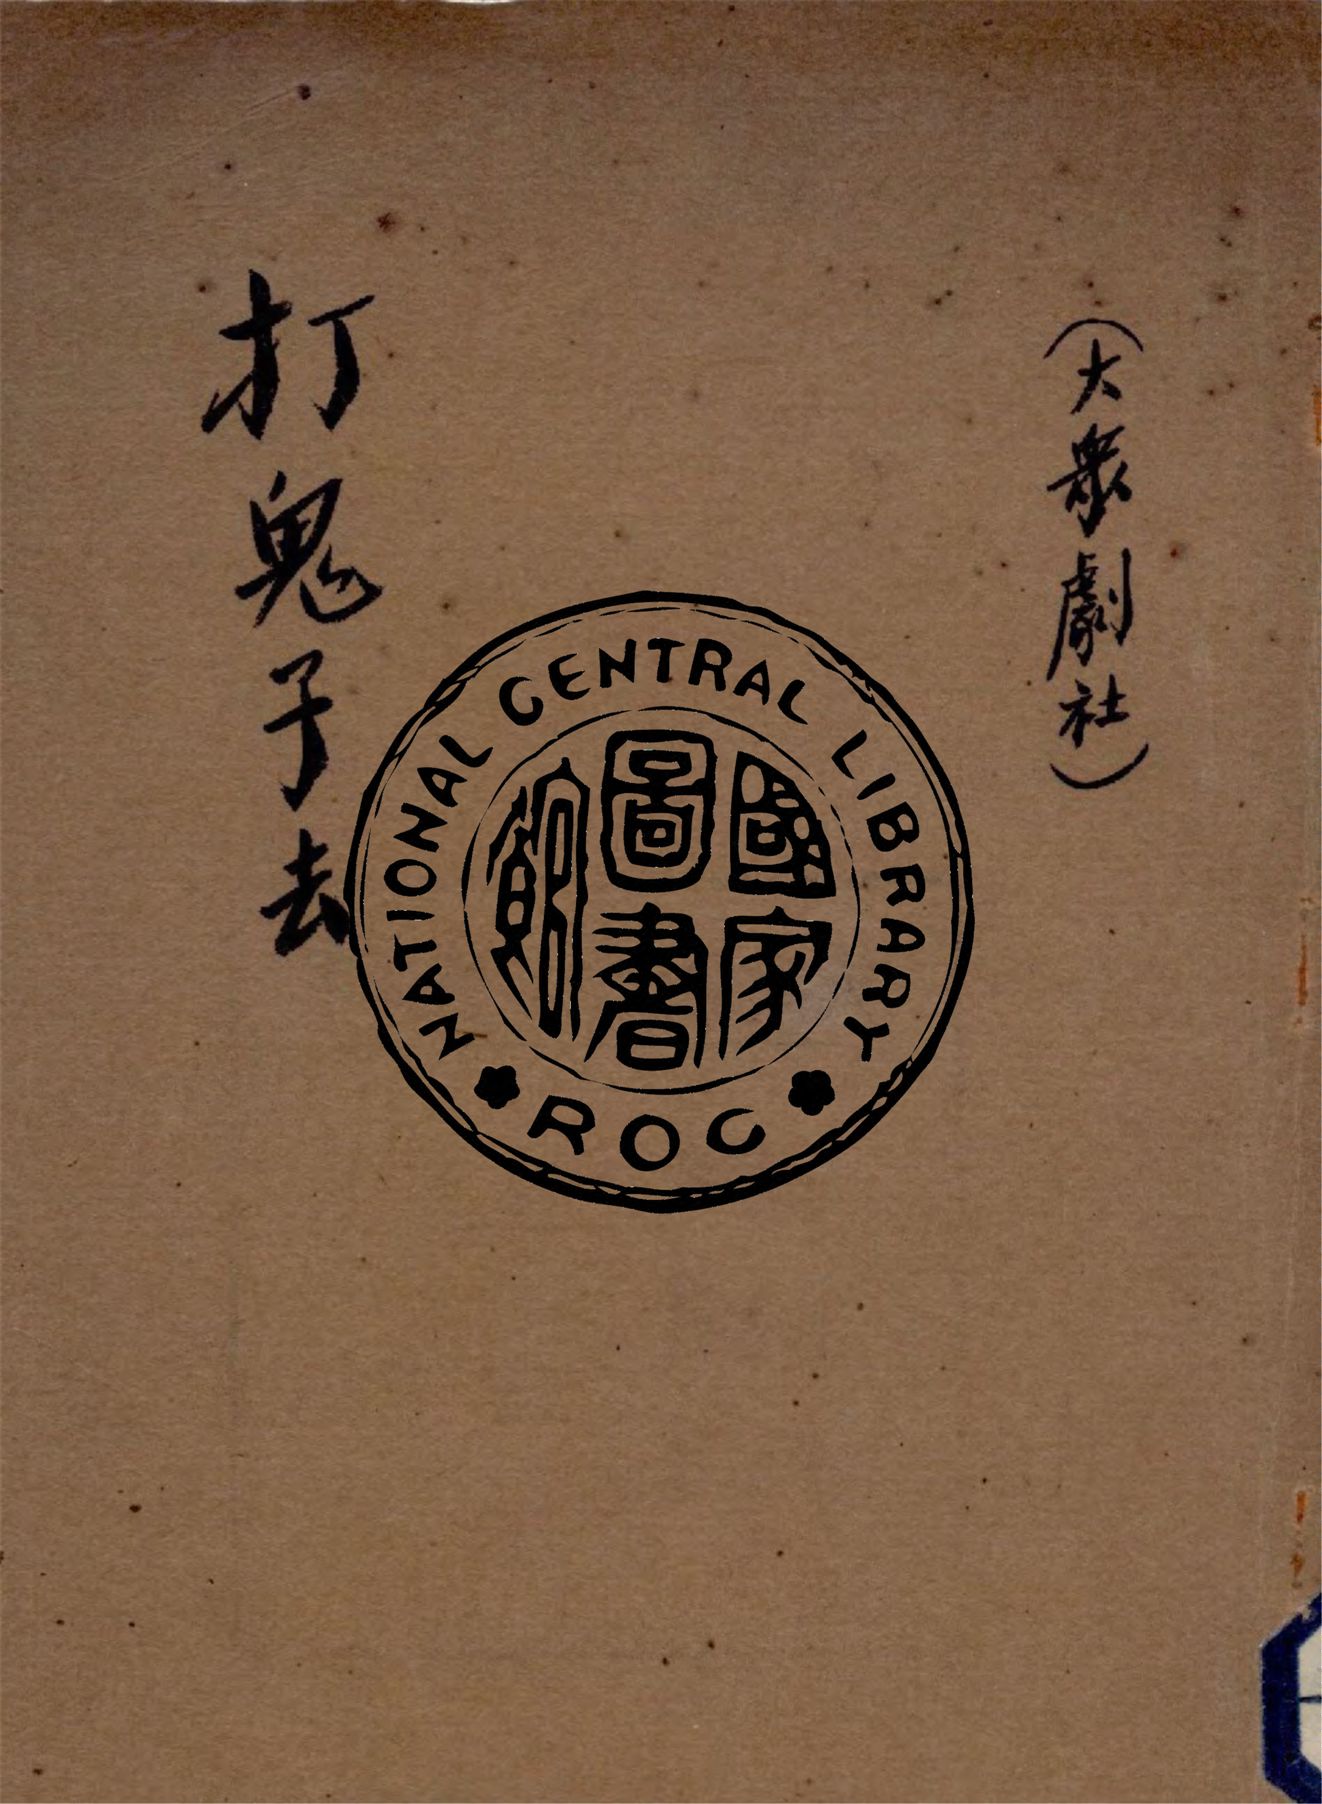 (大眾劇社)
打鬼子去
NATIONAL CENTRAL LIBRARY
國家圖書館
ROC